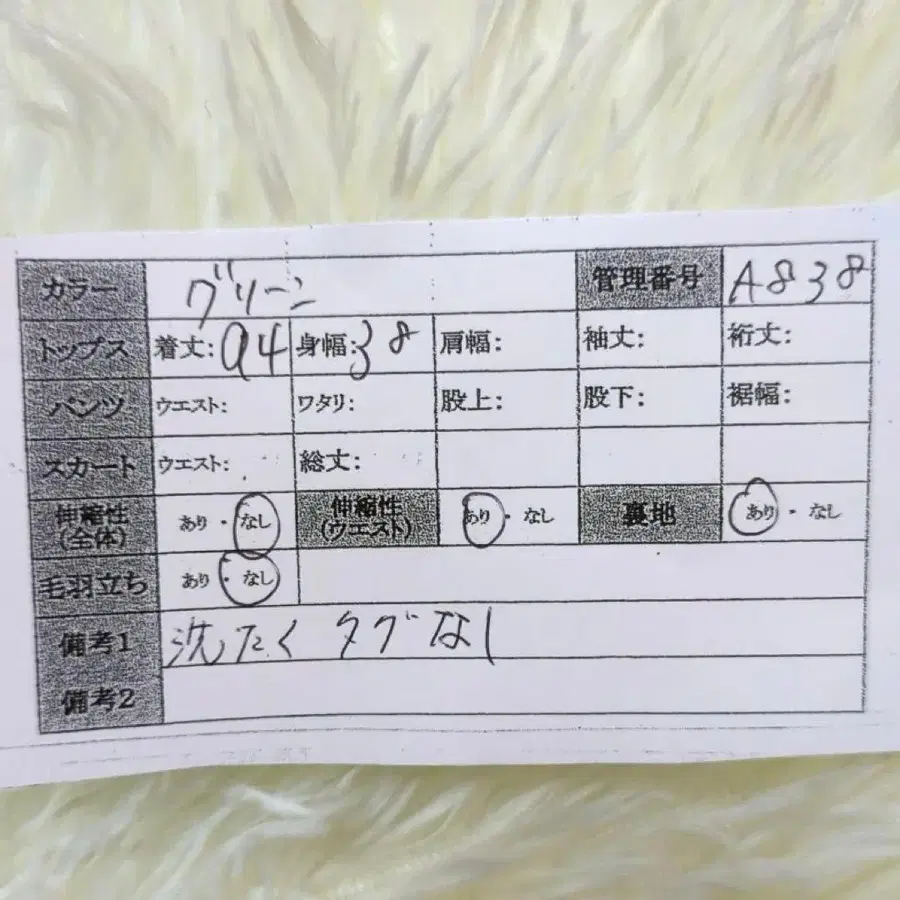 カラー グリーン 管理番号 A838
トップス 着丈:94 身幅:38 肩幅: 袖丈: 裄丈:
パンツ ウエスト: ワタリ: 股上: 股下: 裾幅:
スカート ウエスト: 総丈:
伸縮性(全体) あり・なし 伸縮性(ウエスト) あり・なし 裏地 あり・なし
毛羽立ち あり・なし
備考1 洗たくタグなし
備考2